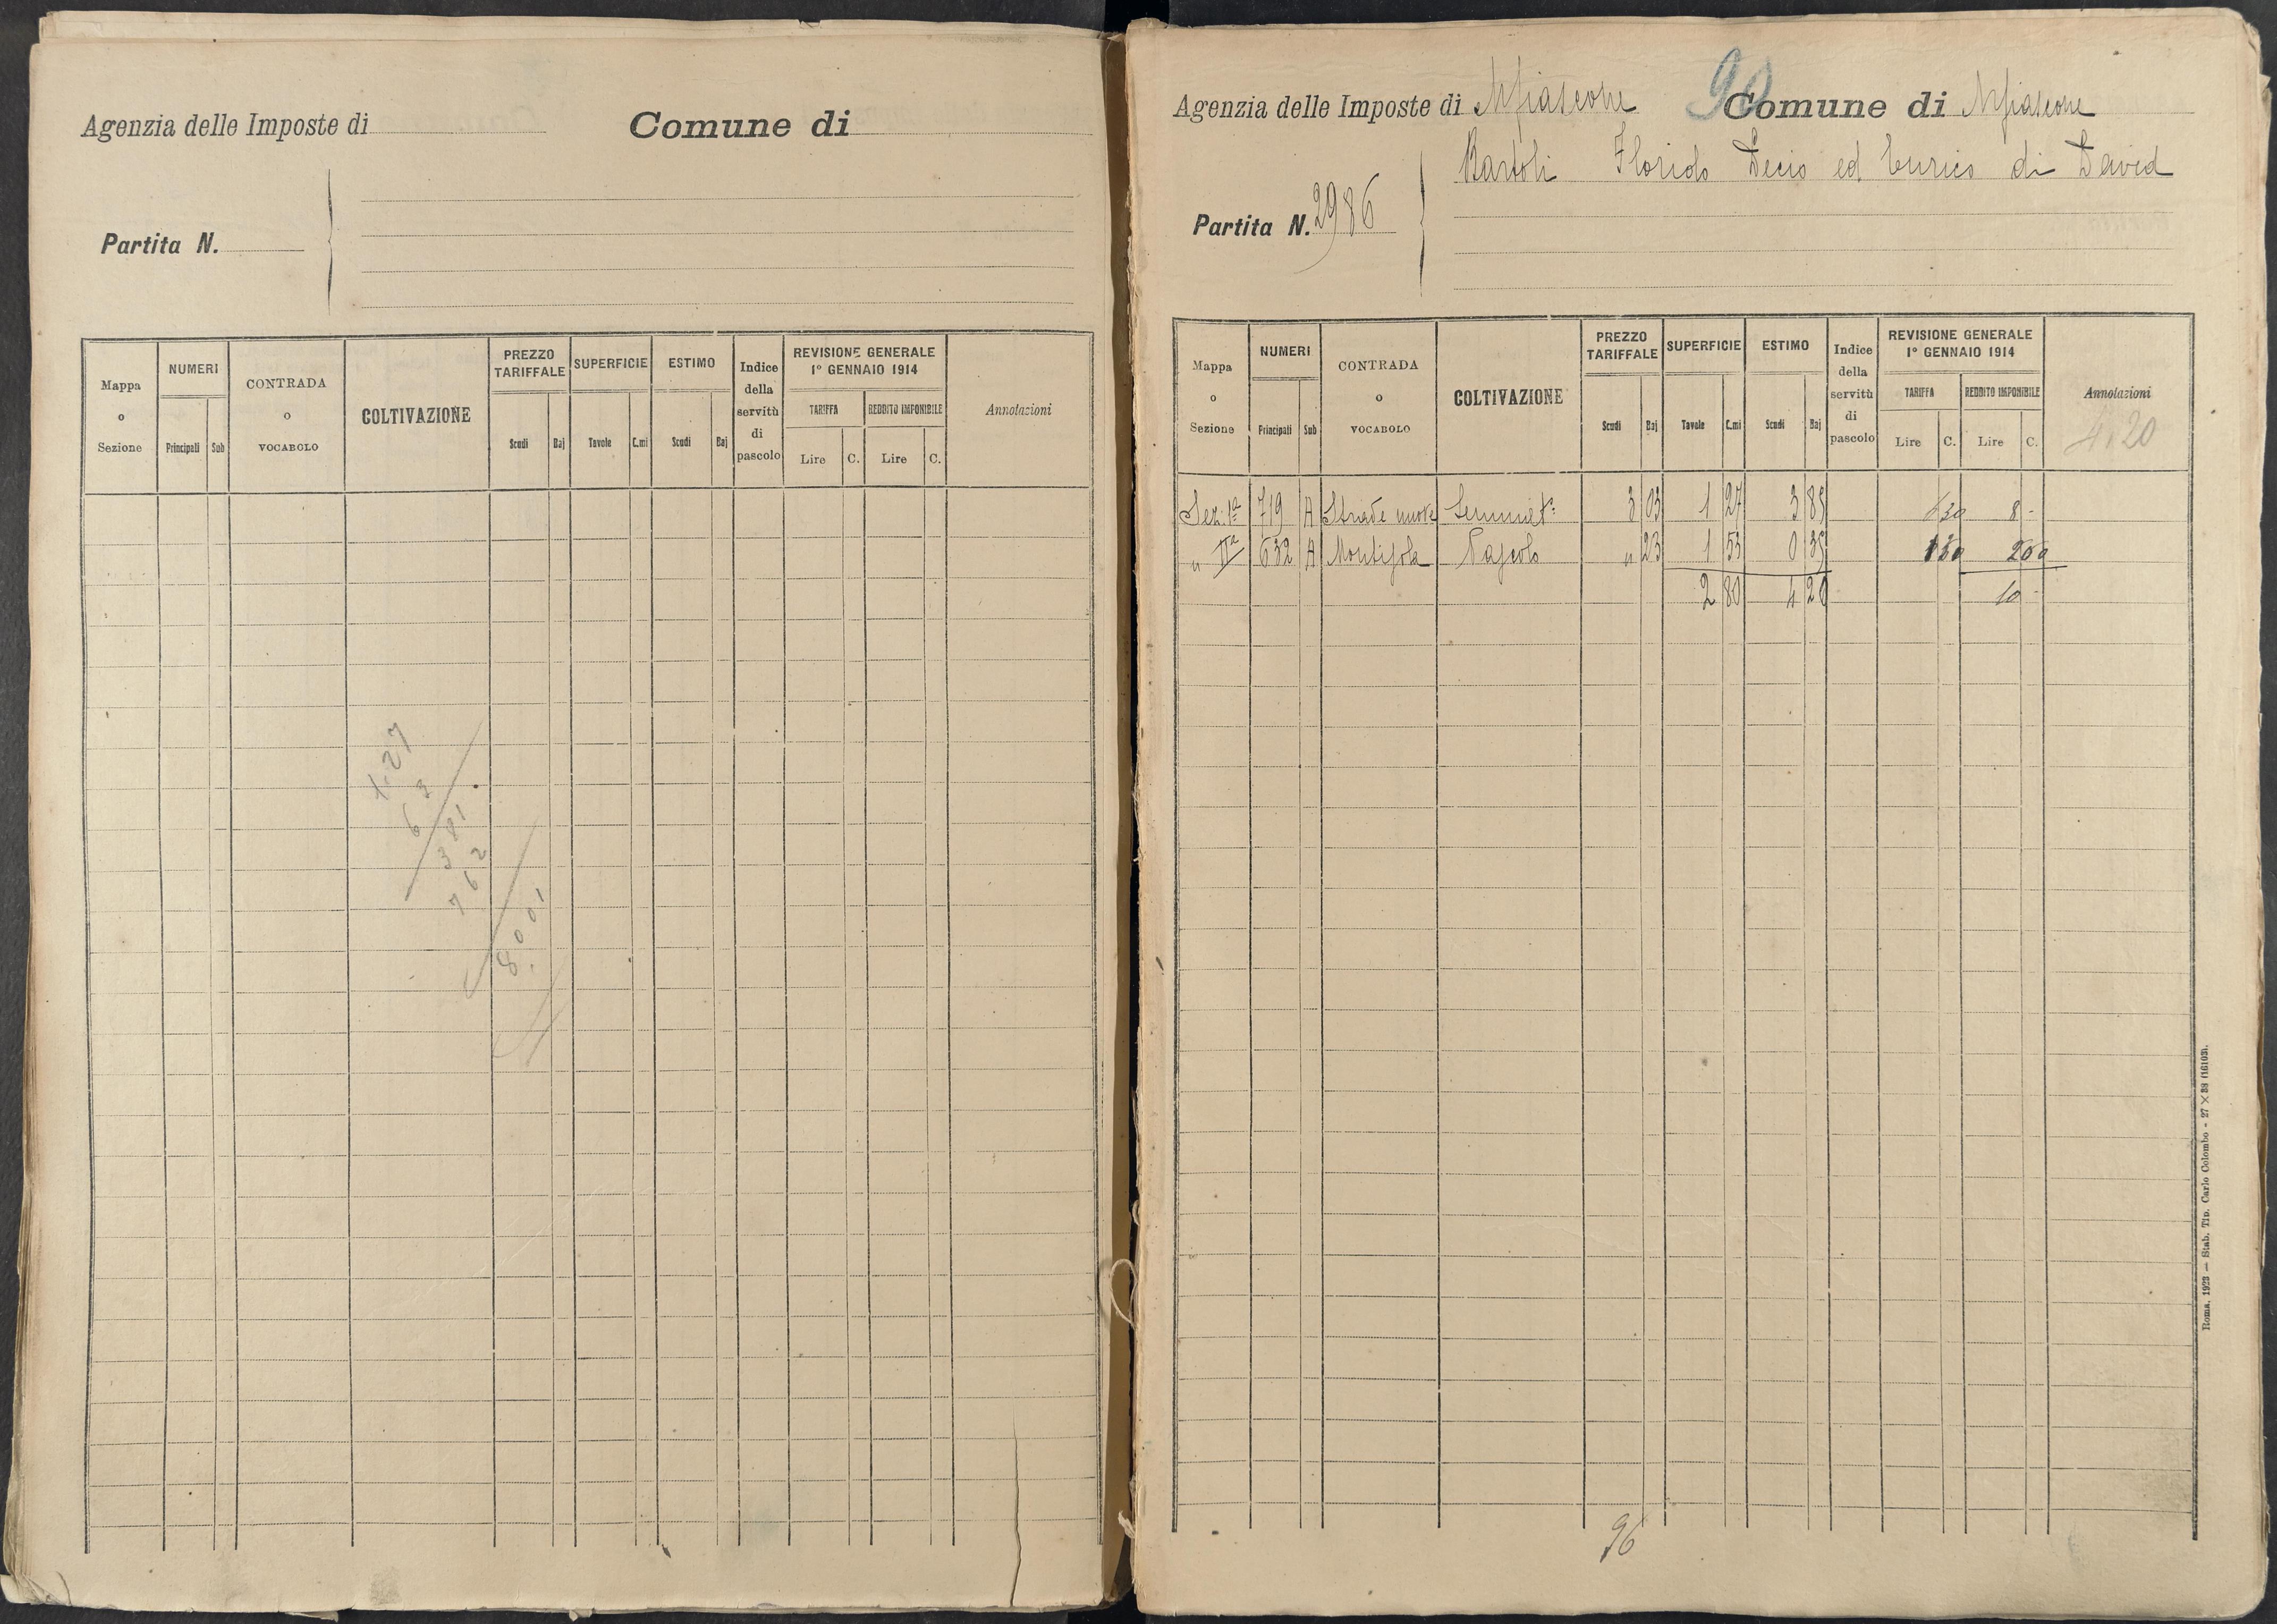 Agenzia delle Imposte di
Comune di
Partita N.
Mappa o Sezione
NUMERI
Principali Sub
CONTRADA o VOCABOLO
COLTIVAZIONE
PREZZO TARIFFALE
Scudi Baj
SUPERFICIE
Tavole C.mi
ESTIMO
Scudi Baj
Indice della servitù di pascolo
REVISIONE GENERALE 1° GENNAIO 1914
TARIFFA
Lire C.
REDDITO IMPONIBILE
Lire C.
Annotazioni
1.27
6 3
3 81
7 6 2
8.001
90
Agenzia delle Imposte di Mfiascone Comune di Mfiascone
Bartoli Florido Decio ed Enrico di David
Partita N. 2986
Mappa o Sezione
NUMERI
Principali Sub
CONTRADA o VOCABOLO
COLTIVAZIONE
PREZZO TARIFFALE
Scudi Baj
SUPERFICIE
Tavole C.mi
ESTIMO
Scudi Baj
Indice della servitù di pascolo
REVISIONE GENERALE 1° GENNAIO 1914
TARIFFA
Lire C.
REDDITO IMPONIBILE
Lire C.
Annotazioni
4.20
Sez. Iª 719 A Strade nuove 3 03 1 27 3 85 6 30 8 -
" IIª 632 A Pascolo " 23 1 53 0 35 1 30 2 00
2 80 4 20 10 -
96
Roma, 1923 — Stab. Tip. Carlo Colombo - 27 × 38 (16103).